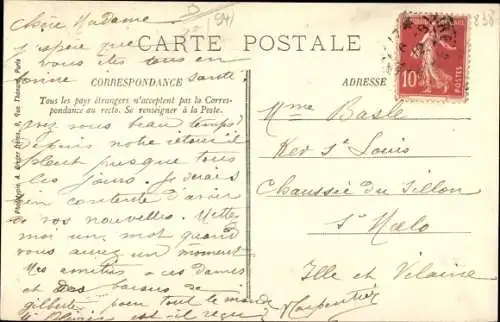 Chère Madame
941
1838
J'espère que
vous êtes tous en
bonne santé.
CARTE POSTALE
CORRESPONDANCE
Tous les pays étrangers n'acceptent pas la Corres-
pondance au recto. Se renseigner à la Poste.
Avez vous beau temps?
Depuis notre
pleut presque tous
les jours. Je serais
bien contente d'avoir
de vos nouvelles. Mettez
moi un mot quand
vous aurez un moment
Mes amitiés a ces dames
et des baisers de
gilberte pour tout le monde
est-il reçu?
Carpentier
ADRESSE
10
POSTES
Mme Basle
Ker St Louis
Chaussée du Sillon
St Malo
Ille et Vilaine
Rue Thénard, Paris